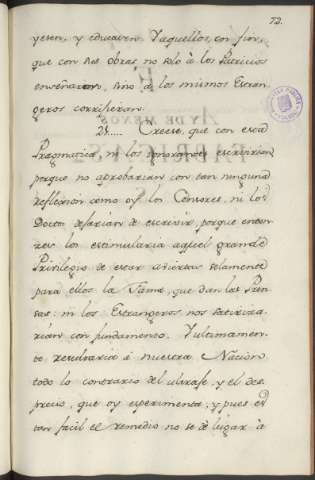 72.
yesen, y educasen Vaquellos, con fixar,
que con sus obras no solo à los Patricios
enseñaron, sino à los mismos Estran
geros corrixeran.
21..... Creese, que con esta
Pragmatica, ni los ignorantes escrivirian
porque no aprobarian con tan ninguna
reflexion como oy los Censores, ni los
Doctos dejarian de escrivir, porque enton
zes los estimularia aquel grande
Privilegio de estar abiertas solamente
para ellos la Fama, que dan las Pren
sas: ni los Estrangeros nos satiriza
rian con fundamento. Vultimamen
te resultaria à nuestra Nacion
todo lo contrario del ultraje, y el des
precio, que oy esperimenta, y pues es
tan facil el remedio no se dè lugar à